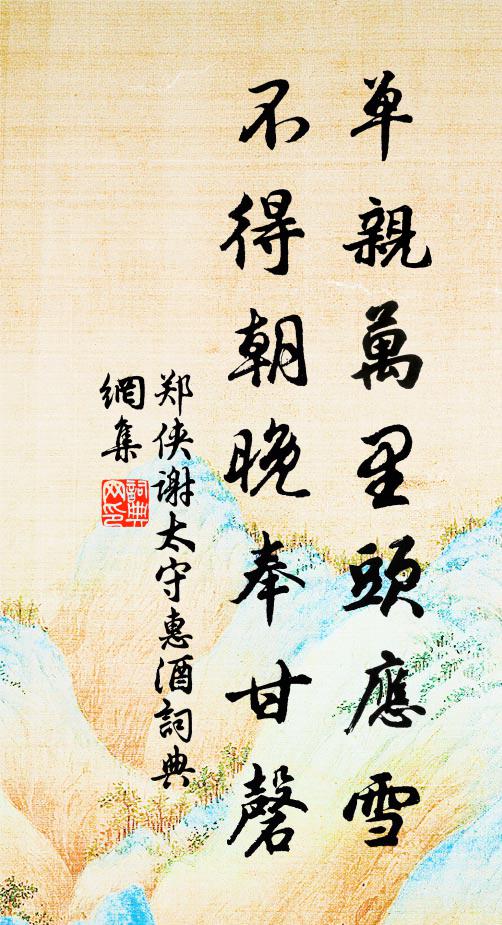 单親萬里頭應雪
不得朝晚奉甘磬
郑侠谢太守惠酒詞典
網集
詞典
网印